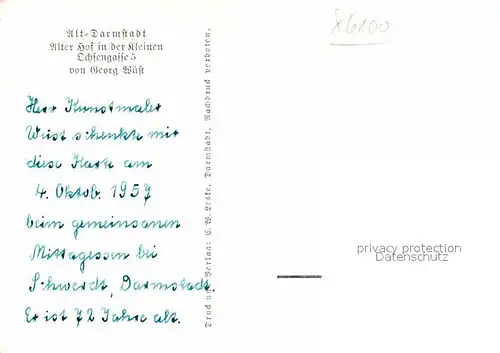 Alt-Darmstadt
Alter Hof in der Kleinen
Ochsengasse 5
von Georg Wüst
Herr Kunstmaler
Wüst schenkte mir
diese Karte am
4. Oktob. 1957
beim gemeinsanen
Mittagessen bei
Schwerdt, Darmstadt.
Er ist 72 Jahre alt.
Druck und Verlag: C. W. Leske, Darmstadt, Nachdruck verboten.
x6100
privacy protection
Datenschutz